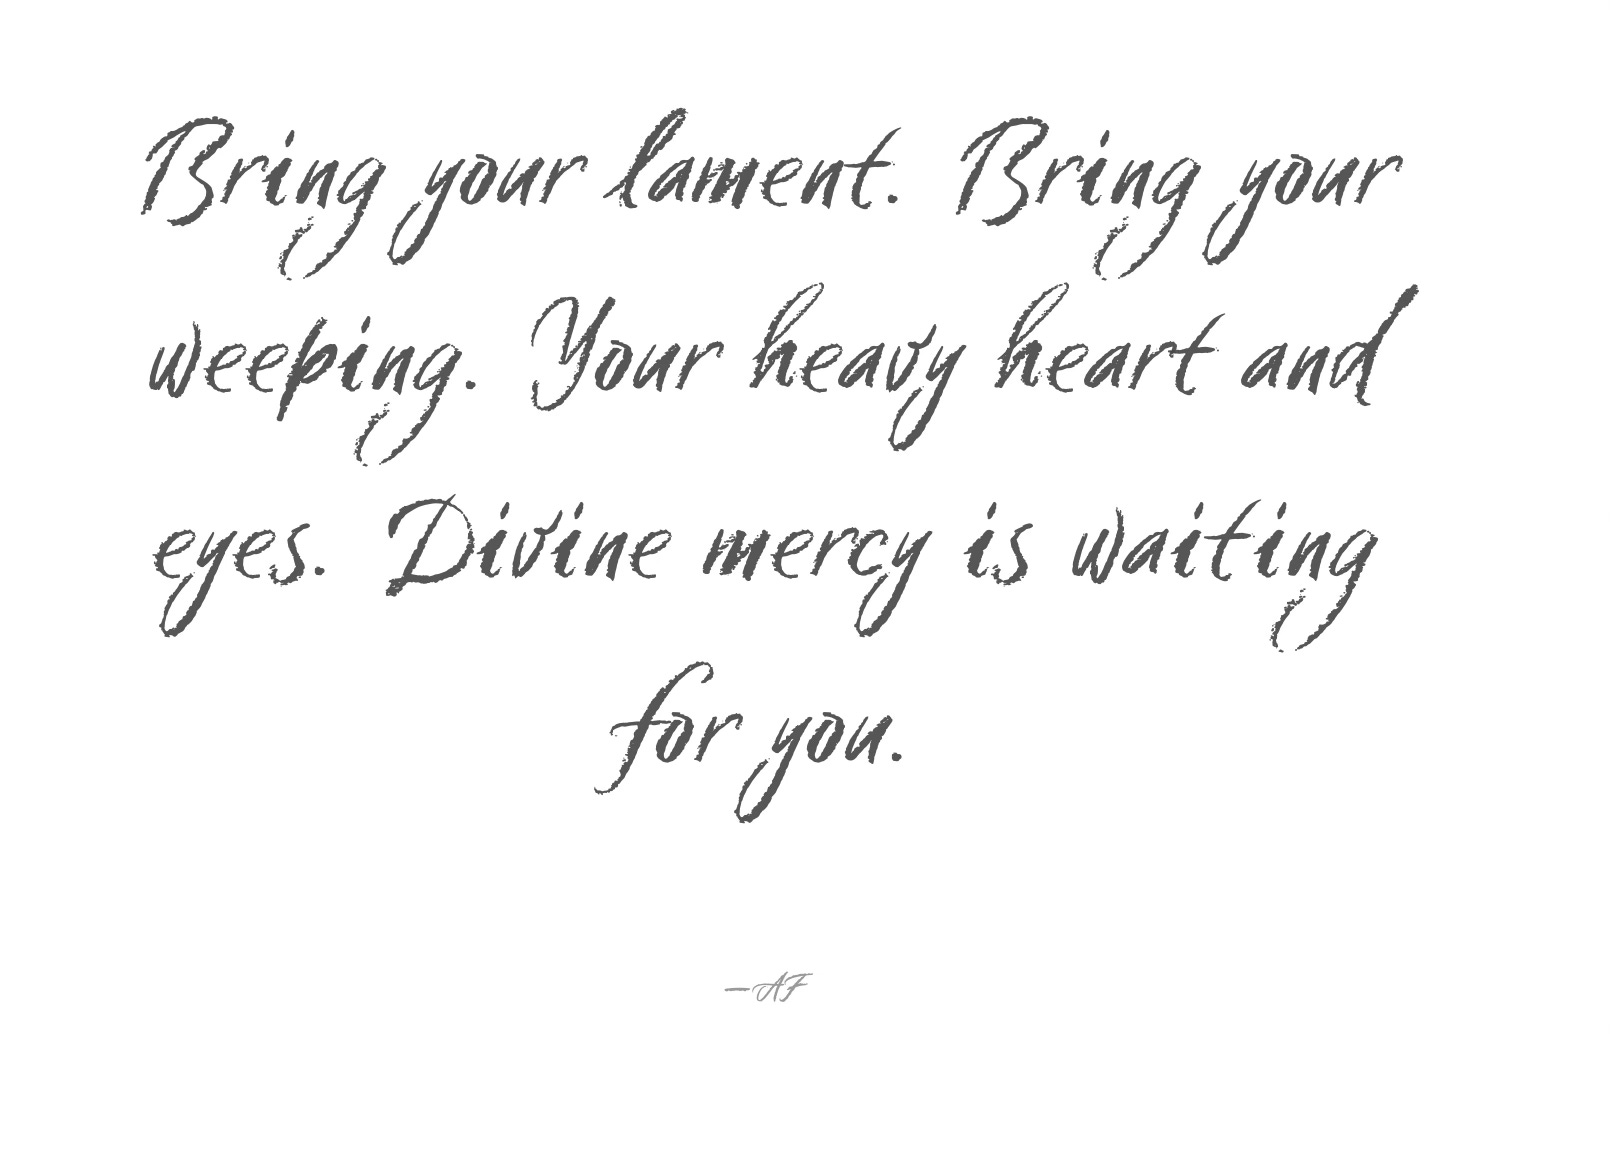 Bring your lament. Bring your
weeping. Your heavy heart and
eyes. Divine mercy is waiting
for you.
—AF